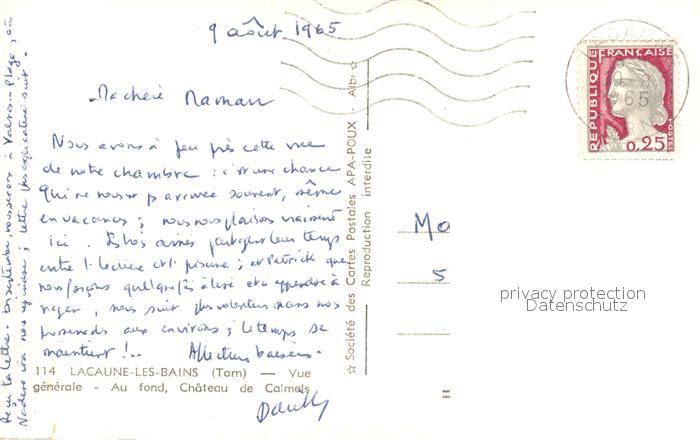 9 août 1965
Ma chère Maman
Nous avons à peu près cette vue
de notre chambre : c'est une chance
qui ne nous arrivee souvent, même
en vacances ; nous nous plaisons vraiment
ici. partagent leur temps
entre la lecture et la piscine ; et Patrick que
nous forçons quelquefois à lire et à apprendre à
nager, nous suit plus volontiers dans nos
promenades aux environs ; le temps se
maintient !.. Affectueux baisers.
Reçu ta lettre. En septembre, nous serons à Valras-Plage, où
Nadine ; lettre plus explicative suit.
114 LACAUNE-LES-BAINS (Tarn) — Vue
générale - Au fond, Château de Calmels
☆ Société des Cartes Postales APA-POUX - Albi ☆
Reproduction interdite
REPUBLIQUE FRANÇAISE
0,25
1965
Mo
5
privacy protection
Datenschutz